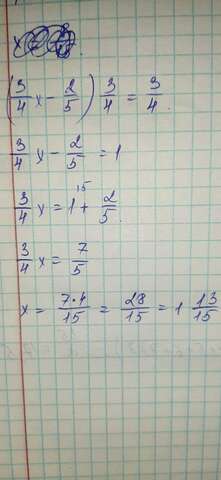 (3/4 x - 2/5) 3/4 = 3/4.
3/4 x - 2/5 = 1
3/4 x = 1 15 + 2/5.
3/4 x = 7/5
x = 7·4/15 = 28/15 = 1 13/15